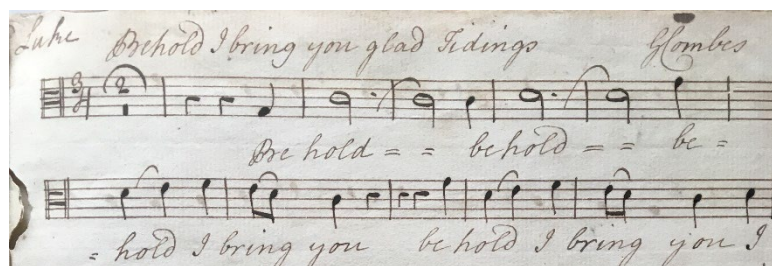 Luke Behold I bring you glad Tidings GCombes
3 2
4
Be hold = = behold = = be =
= hold I bring you behold I bring you I